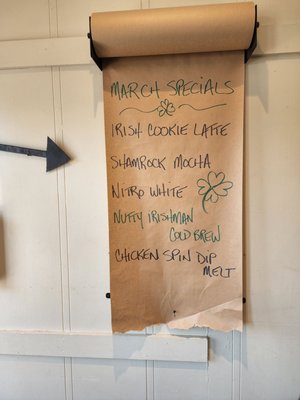 MARCH SPECIALS
IRISH COOKIE LATTE
SHAMROCK MOCHA
NITRO WHITE
NUTTY IRISHMAN
COLD BREW
CHICKEN SPIN DIP
MELT